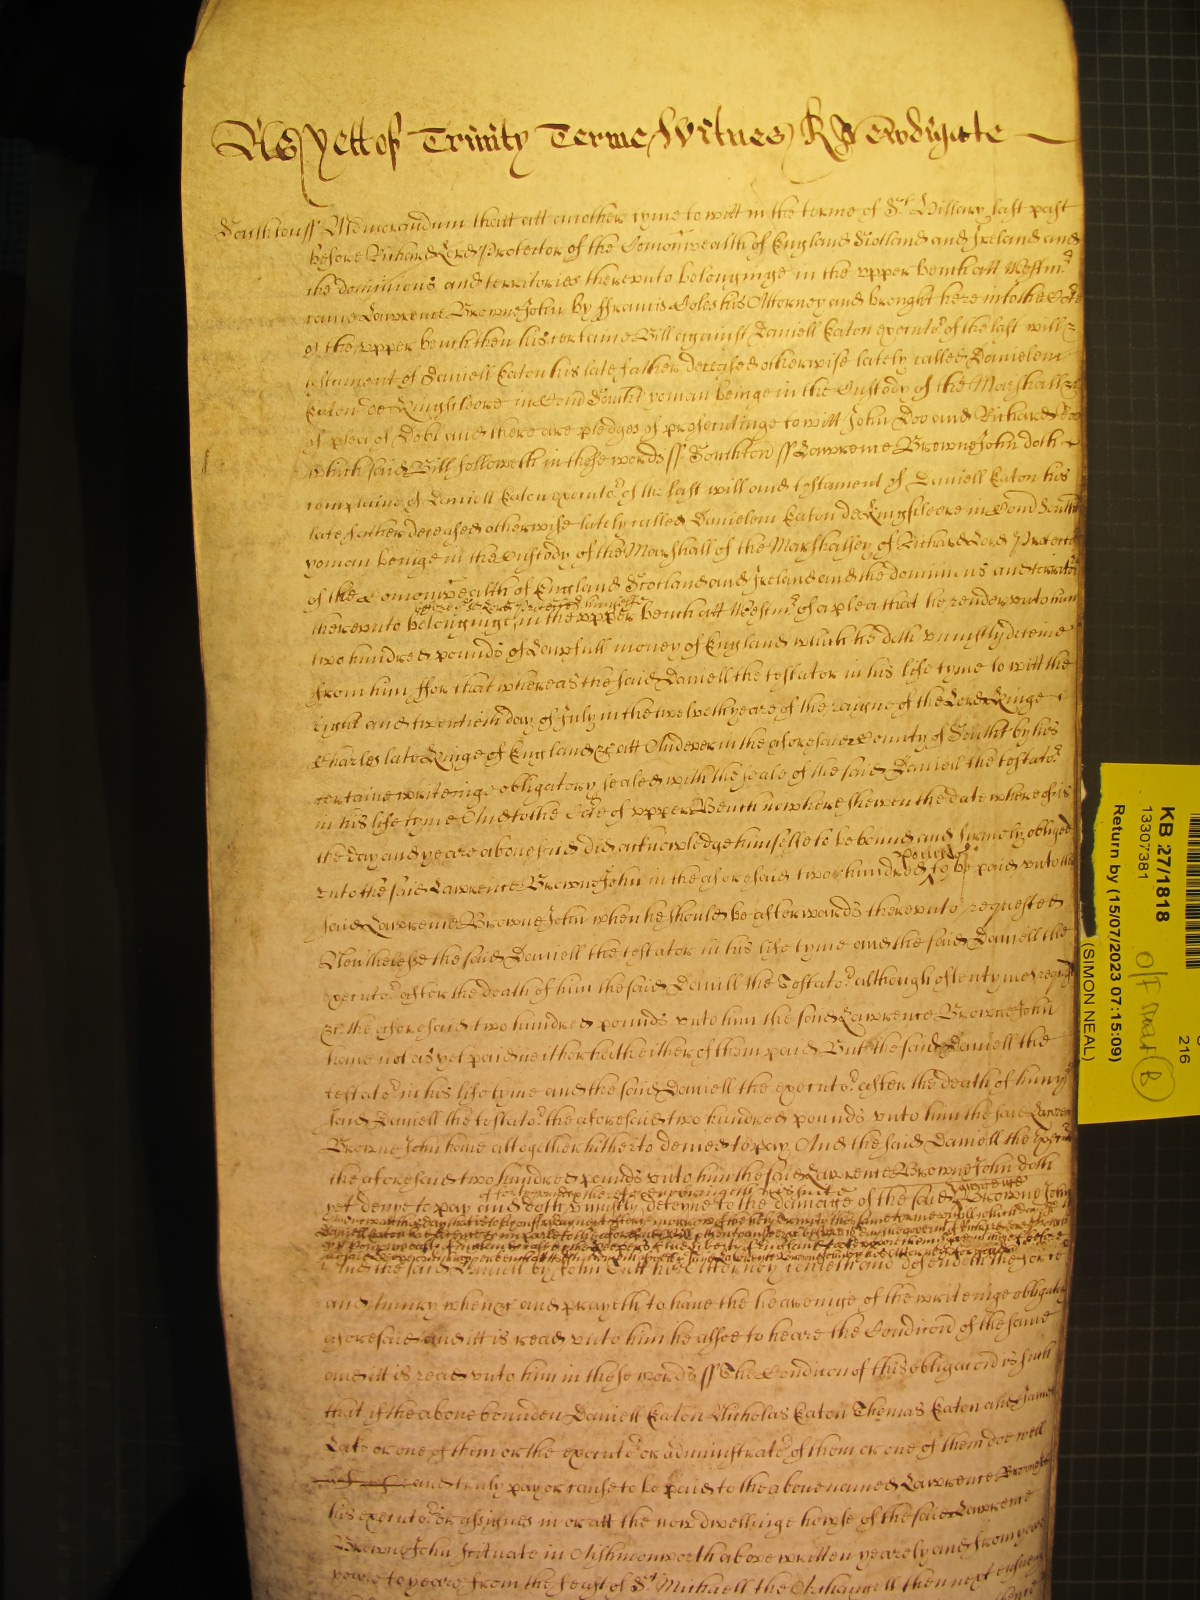 As yett of Trinity Terme Witnes R Newdigate
Southton ss Memorandum thatt att another tyme to witt in the terme of St Hillary last past
before Richard Lord Protector of the Comonwealth of England Scotland and Ireland and
the dominions and territories therevnto belonginge in the vpper bench att Westmr
came Lawrence Browne John by ffrancis Coles his Attorney and brought here into the Cort
of the vpper bench then his certaine Bill against Daniell Eaton executor of the last will &
testament of Daniell Eaton his late father deceased otherwise lately called Danielem
Eaton de Kingscleere in Com Southt yoman beinge in the Custody of the Marshall &c
of plea of Debt and there are pledges of prosecutinge to witt John Doo and Richard Roo
which said Bill followeth in these words ss Southton ss Lawrence Browne John doth
complaine of Daniell Eaton executor of the last will and testament of Daniell Eaton his
late father deceased otherwise lately called Danielem Eaton de Kingscleere in Com Southt
yoman beinge in the Custody of the Marshall of the Marshallsey of Richard Lord Protector
of the Comonwealth of England Scotland and Ireland and the dominions and territor
before the Lord Protector himselfe
therevnto belonginge in the vpper bench att Westmr of a plea that he render vnto him
two hundred pounds of Lawfull money of England which he doth vniustly deteine
from him ffor that whereas the said Daniell the testator in his life tyme to witt the
eight and twentieth day of July in the twelveth yeare of the raigne of the Lord Kinge
Charles late Kinge of England &c att Andever in the aforesaid County of Southt by his
certaine writeinge obligatory sealed with the seale of the said Daniell the testator
in his life tyme And to the Cort of vpper Bench now here shewen the date whereof is
the day and yeare aboue said did acknowledge himselfe to be bound and firmely obliged
pounds
vnto the said Lawrence Browne John in the aforesaid two hundred to be paid vnto the
said Lawrence Browne John when he should be afterwards therevnto requested
Neuertheles the said Daniell the testator in his life tyme and the said Daniell the
executor after the death of him the said Daniell the Testator although oftentymes requir
&c the aforesaid two hundred pounds vnto him the said Lawrence Browne John
haue not as yet paid neither hath either of them paid But the said Daniell the
testator in his life tyme and the said Daniell the executor after the death of him ye
said Daniell the testator the aforesaid two hundred pounds vnto him the said Lawrence
Browne John haue altogether hitherto denied to pay And the said Daniell the Executor
the aforesaid two hundred pounds vnto him the said Lawrence Browne John doth
Lawrence
yet denie to pay and doth vniustly deteyne to the damage of the said Browne John
And the said Daniell by John his Attorney cometh and defendeth the force
and iniury when &c and prayeth to haue the heareinge of the writeinge obligatory
aforesaid and itt is read vnto him he alsoe to heare the Condicon of the same
and itt is read vnto him in these words ss The Condicon of this obligacon is such
that if the aboue bounden Daniell Eaton Nicholas Eaton Thomas Eaton and James
Late or one of them or the executor or administrator of them or one of them doe well
and truly pay or cause to be paid to the abouenamed Lawrence Browne John
his executor or assignes in or att the now dwellinge howse of the said Lawrence
Browne John scituate in Ashmonworth aboue written yearely and from yeare
yeare to yeare from the feast of St Michaell the Archangell then next ensuing
KB 27/1818
13307381
Return by (15/07/2023 07:15:09)
(SIMON NEAL)
216